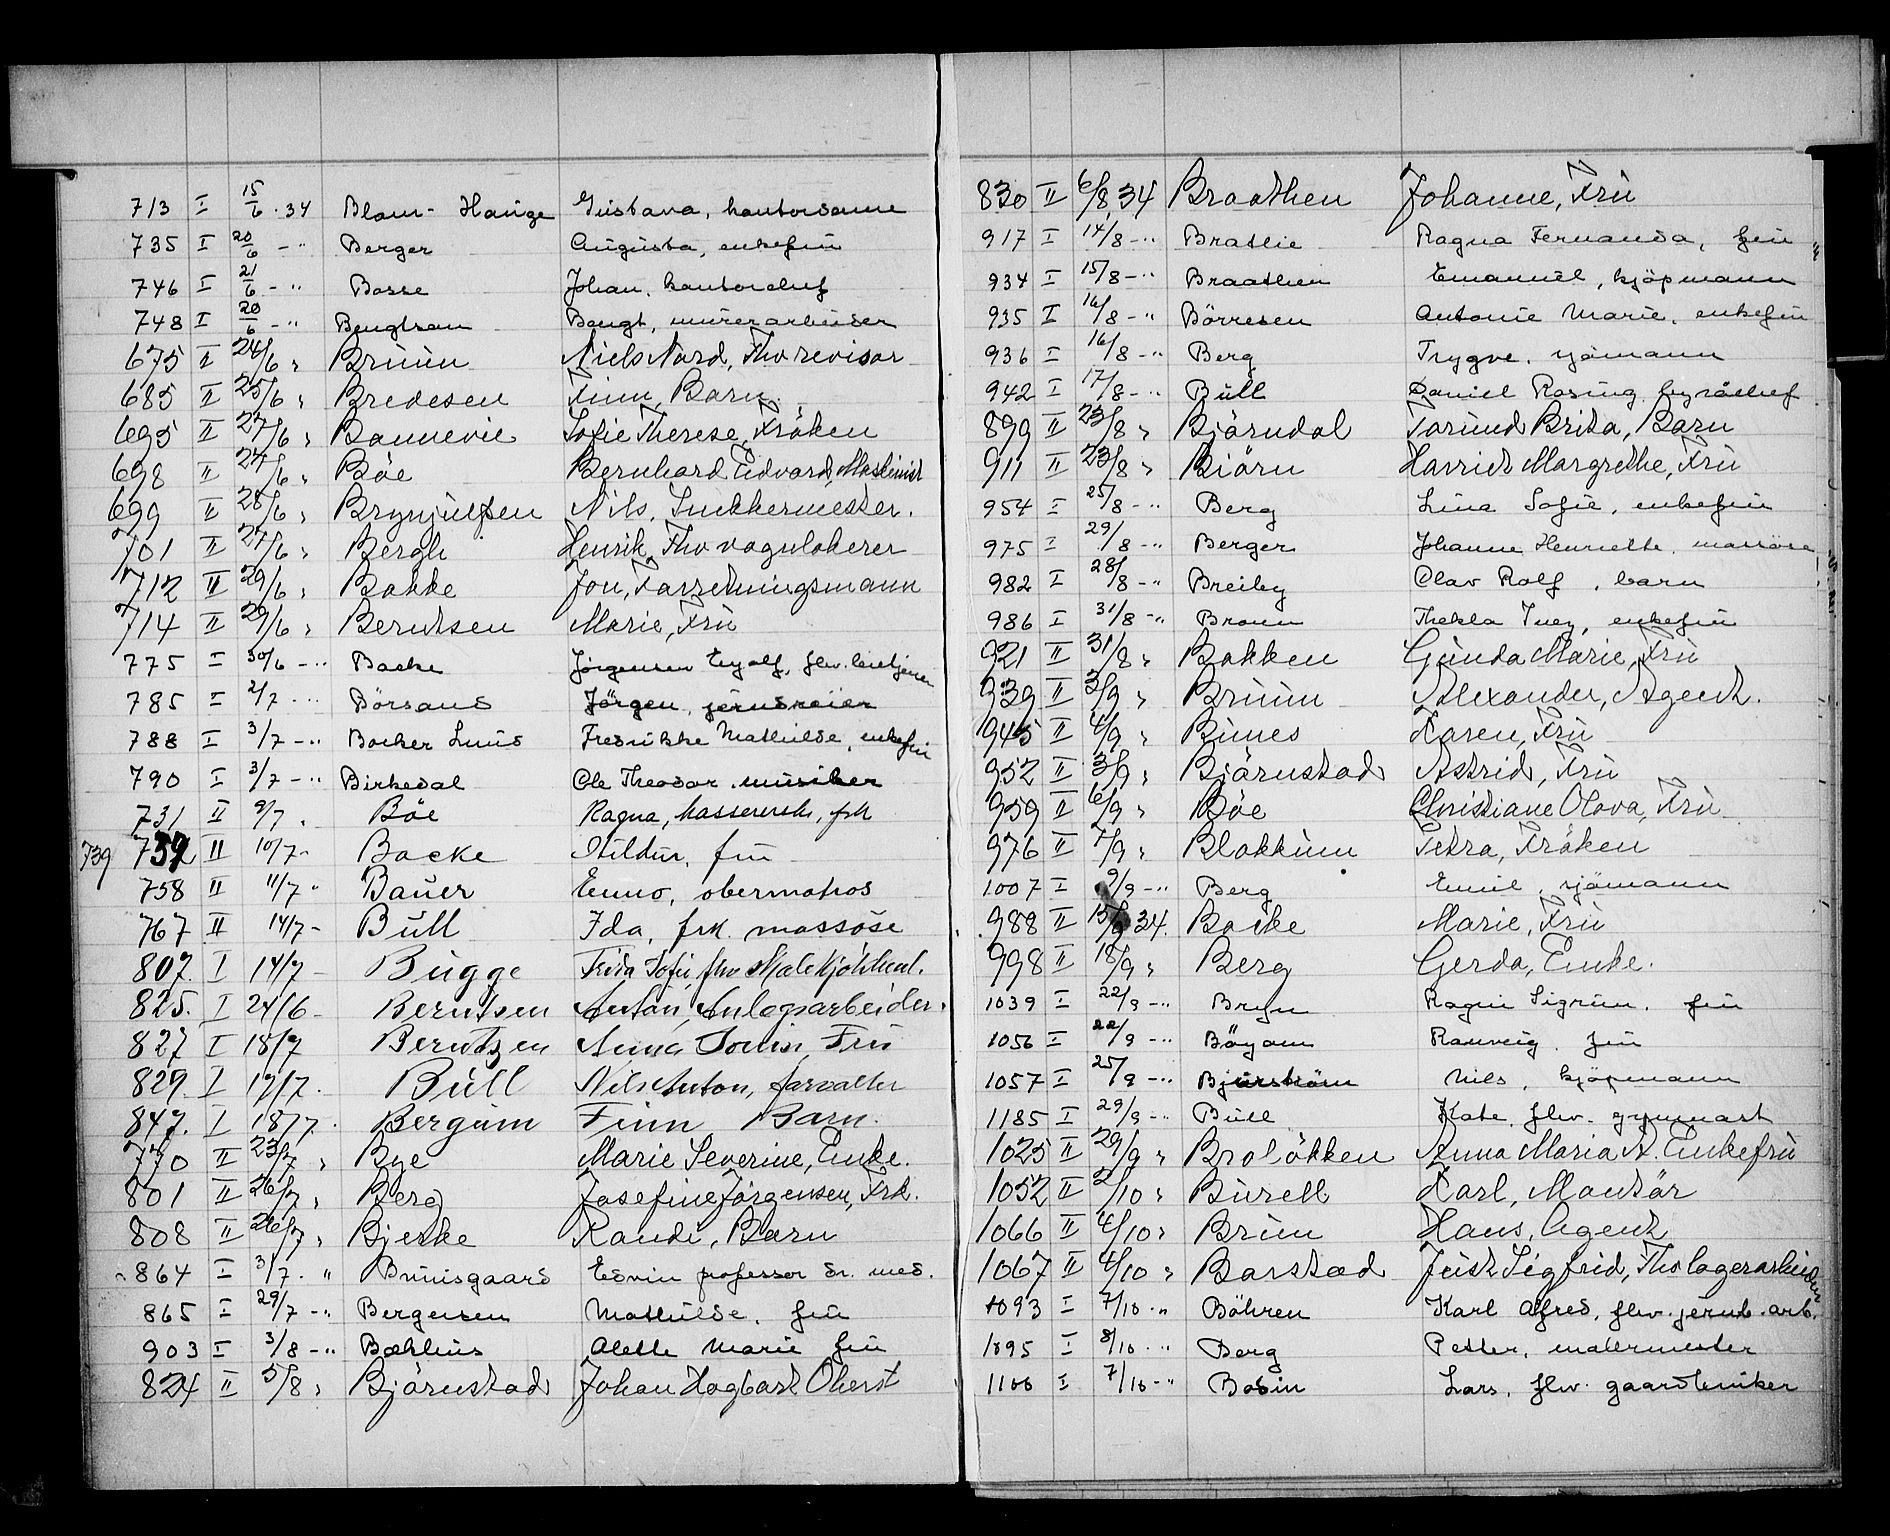 713 I 15/6 . 34 Blom - Hauge Gustava, kontordame
735 I 20/6 - " Berger Augusta, enkefru
746 I 21/6 - " Bosse Johan, kontorchef
748 I 20/6 - " Bengtson Bengt, murerarbeider
675 II 24/6 " Bruun Niels Nord, Fhv revisor
685 II 25/6 " Bredesen Finn, Barn
695 II 27/6 " Bonnevie Sofie Therese, Fröken
698 II 27/6 " Böe Bernhard Edvard, Maskinist
699 II 28/6 " Brynjulfsen Nils, Snekkermester.
701 II 27/6 " Bergh Henrik, Fhv vognlakerer
712 II 29/6 " Bakke Jon, Forretningsmann
714 II 29/6 " Berntsen Marie, Fru
775 I 30/6 - " Backe Jörgensen Eyolf, fhv. betjener
785 I 2/7 - " Börsand Jörgen, jerndreier
788 I 3/7 - " Bocker Lund Fredrikke Mathilde, enkefru
790 I 3/7 - " Birkedal Ole Theodor, musiker
731 II 9/7 . Böe Ragna, kassererske, frk
739 739 II 10/7 - Backe Hildur, fru
758 II 11/7 " Bauer Enno, obermatros
767 II 14/7 - Bull Ida, frk. massöse
807 I 14/7 - Bugge Frida Sofie,
825. I 24/6 - Berntsen Anton, Anlegsarbeider.
827 I 18/7 Berntzen Anna Lovise, Fru
829. I 17/7. Bull Nils Anton, forvalter
847. I 18/7. Bergum Finn Barn.
770 II 23/7 " Bye Marie Severine, Enke.
801 II 26/7 " Berg Josefine Jörgensen, Frk.
808 II 26/7 " Bjerke Randi, Barn
864 I 31/7 . " Bruusgaard Edvin professor dr. med.
865 I 29/7 - " Bergersen Mathilde, fru
903 I 3/8 - " Bæhlius Alette Marie fru
824 II 5/8 " Björnstad Johan Hagbart Oberst
830 II 6/8 34 Braathen Johanne, Fru
917 I 14/8 - " Bratlie Ragna Fernanda, fru
934 I 15/8 - " Braathen Emanuel, kjöpmann
935 I 16/8 - " Börresen Antonie Marie, enkefru
936 I 16/8 - " Berg Trygve, sjömann
942 I 17/8 - " Bull Daniel Rosing byråchef
899 II 23/8 " Björndal Torunn Brita, Barn
911 II 23/8 " Björn Harriet Margrethe, Fru
954 I 25/8 - " Berg Lina Sofie, enkefru
975 I 29/8 - " Berger Johanne Henriette, massöse
982 I 28/8 - " Breiby Olav Rolf, barn
986 I 31/8 - " Broun Thekla Inez, enkefru
921 II 31/8 " Bakken Gunda Marie, Fru
939 II 3/9 " Bruun Alexander, Agent.
945 II 4/9 " Bunes Karen, Fru
952 II 3/9 " Björnstad Astrid, Fru
959 II 6/9 " Böe Christiane Olova, Fru
976 II 7/9 " Blakkum Petra, Fröken
1007 I 9/9 - " Berg Emil, sjömann
988 II 15/9 34. Backe Marie, Fru
998 II 18/9 " Berg Gerda, Enke.
1039 I 22/9 - " Bryn Ragni Sigrun, fru
1056 I 22/9 - " Böyum Ranveig, fru
1057 I 25/9 - " Bjurström Nils, kjöpmann
1185 I 29/9 - " Bull Kate, fhv. gymnast
1025 II 29/9 " Brolökken Anna Maria A. Enkefru
1052 II 2/10 " Burell Karl, Montör
1066 II 4/10 " Brun Hans, Agent
1067 II 4/10 " Barstad Just Sigfrid, Fhv lagerarbeider
1093 I 7/10 . " Böhren Karl Alfred, fhv. jernb. arb.
1095 I 8/10 . " Berg Petter, malermester
1106 I 7/10 - " Bobin Lars, fhv.